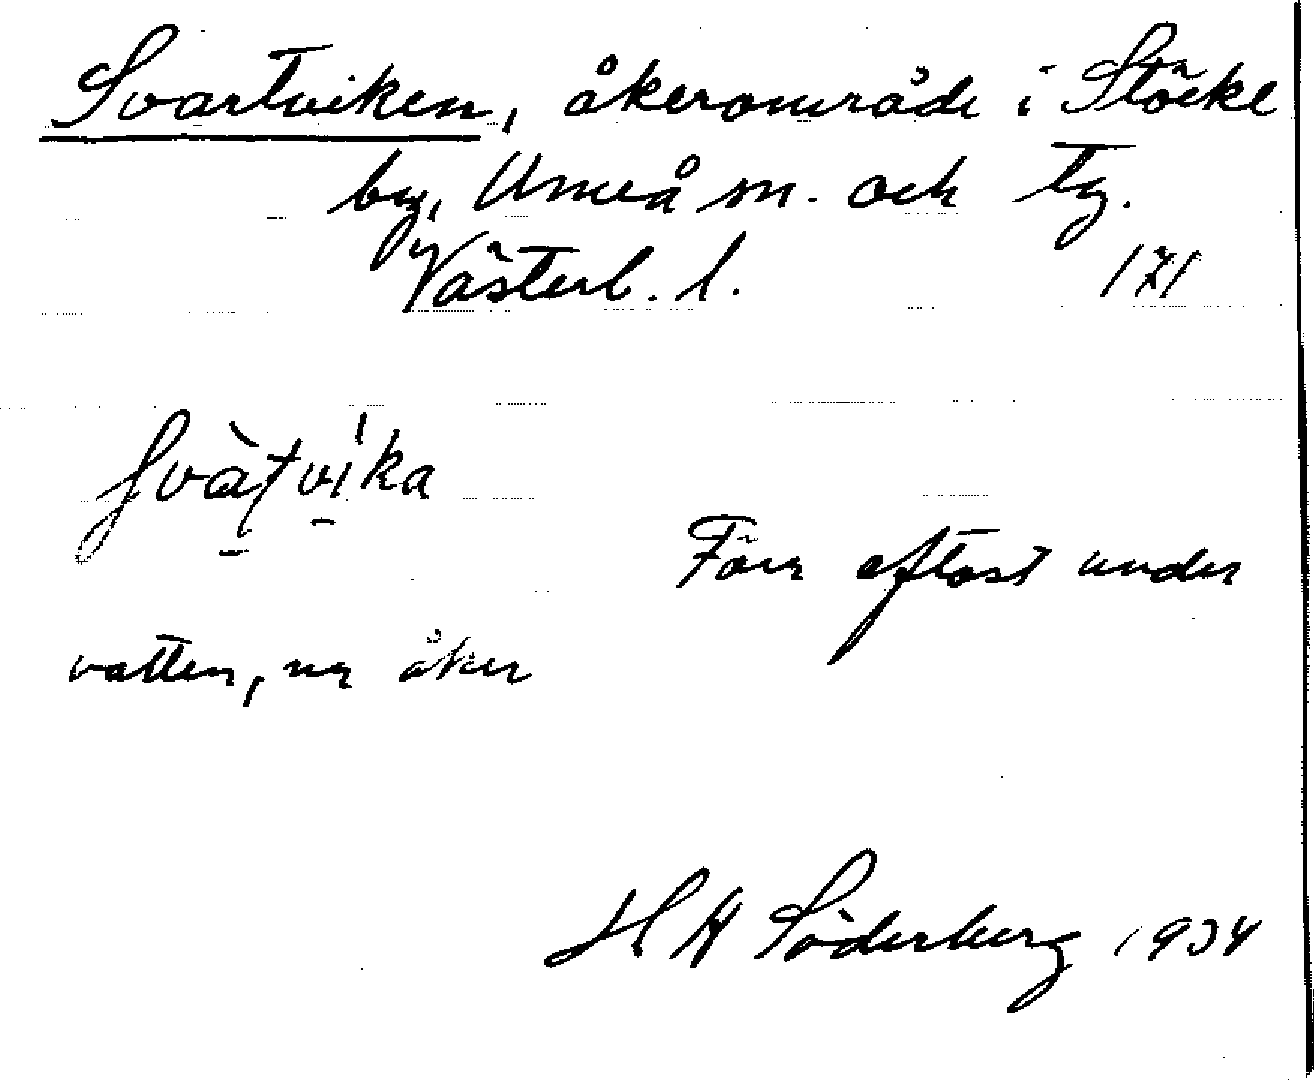 Svartviken, åkerområde i Stöcke
by, Umeå sn. och tg.
Västerb. l. 171
svàṭvi̱ka
Förr oftast under
vatten, nu åker
H H Söderberg 1934